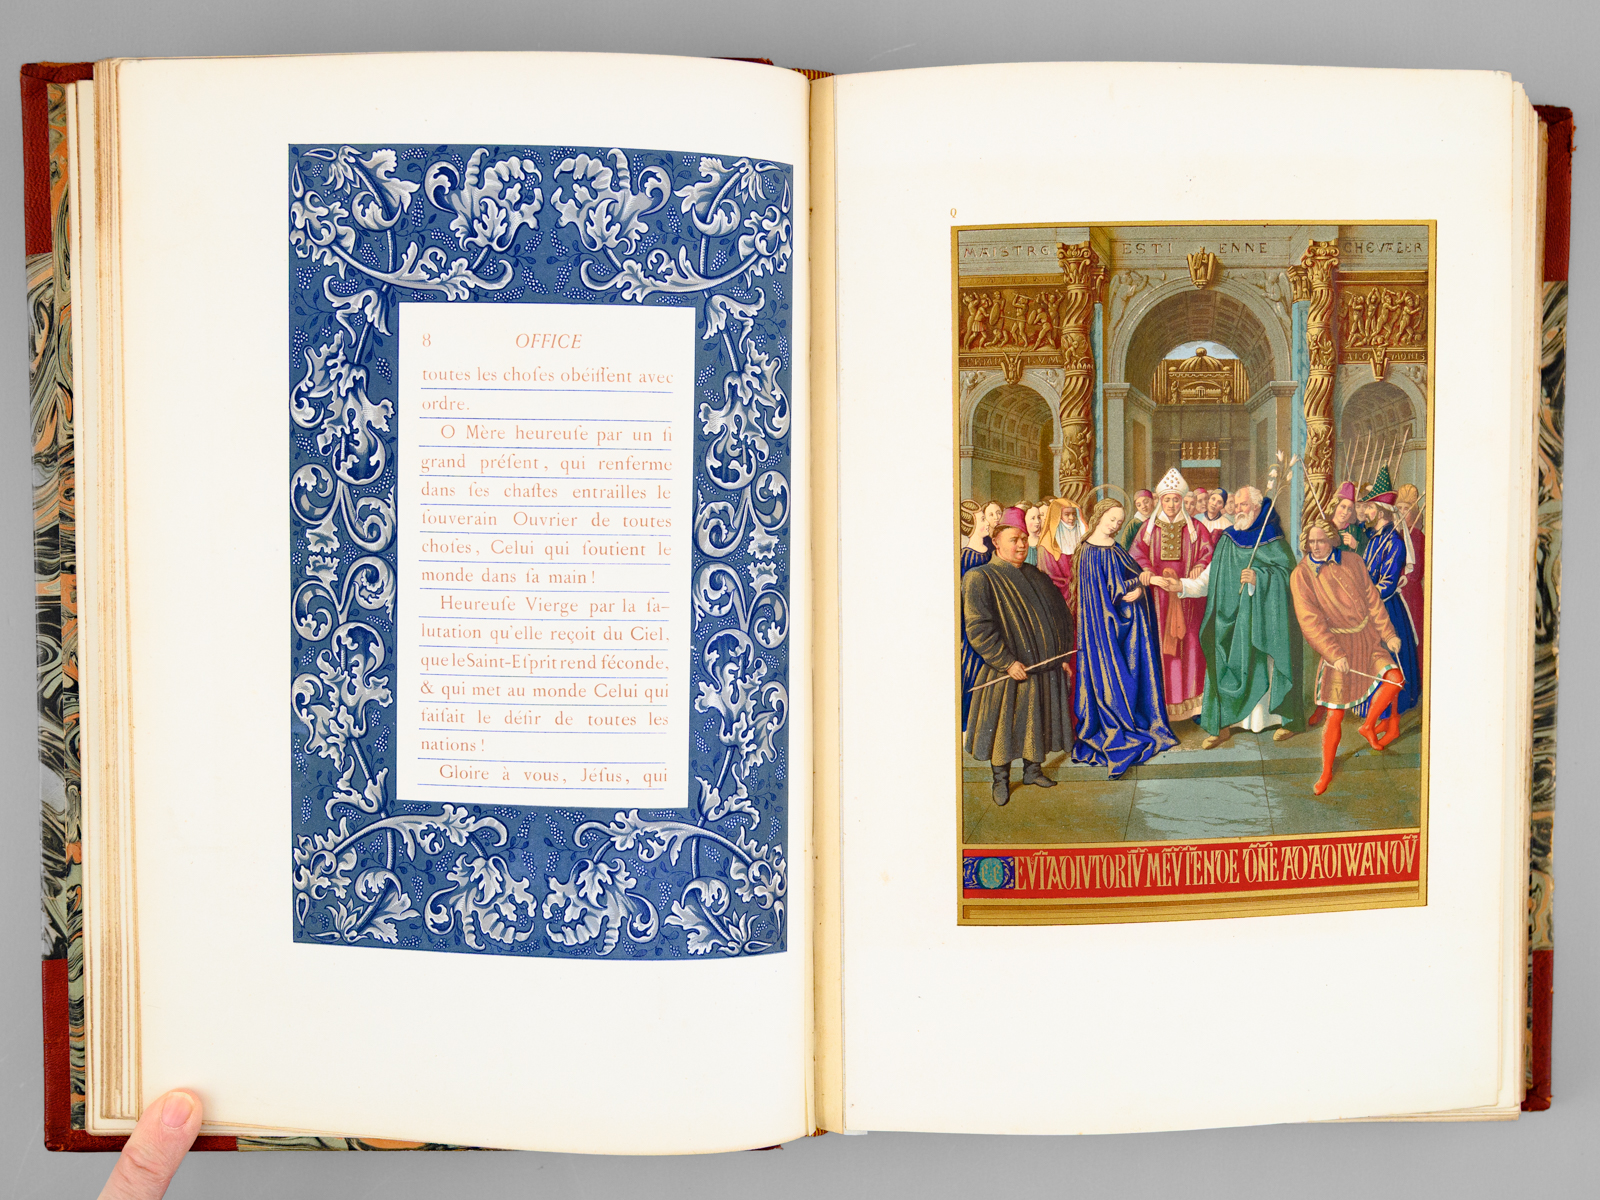 8 OFFICE
toutes les choſes obéiſſent avec
ordre.
O Mère heureuſe par un ſi
grand préſent, qui renferme
dans ſes chaſtes entrailles le
ſouverain Ouvrier de toutes
choſes, Celui qui ſoutient le
monde dans ſa main !
Heureuſe Vierge par la ſa–
lutation qu'elle reçoit du Ciel,
que le Saint-Eſprit rend féconde,
& qui met au monde Celui qui
faiſait le déſir de toutes les
nations !
Gloire à vous, Jéſus, qui
Q
MAISTRE ESTIENNE CHEVALER